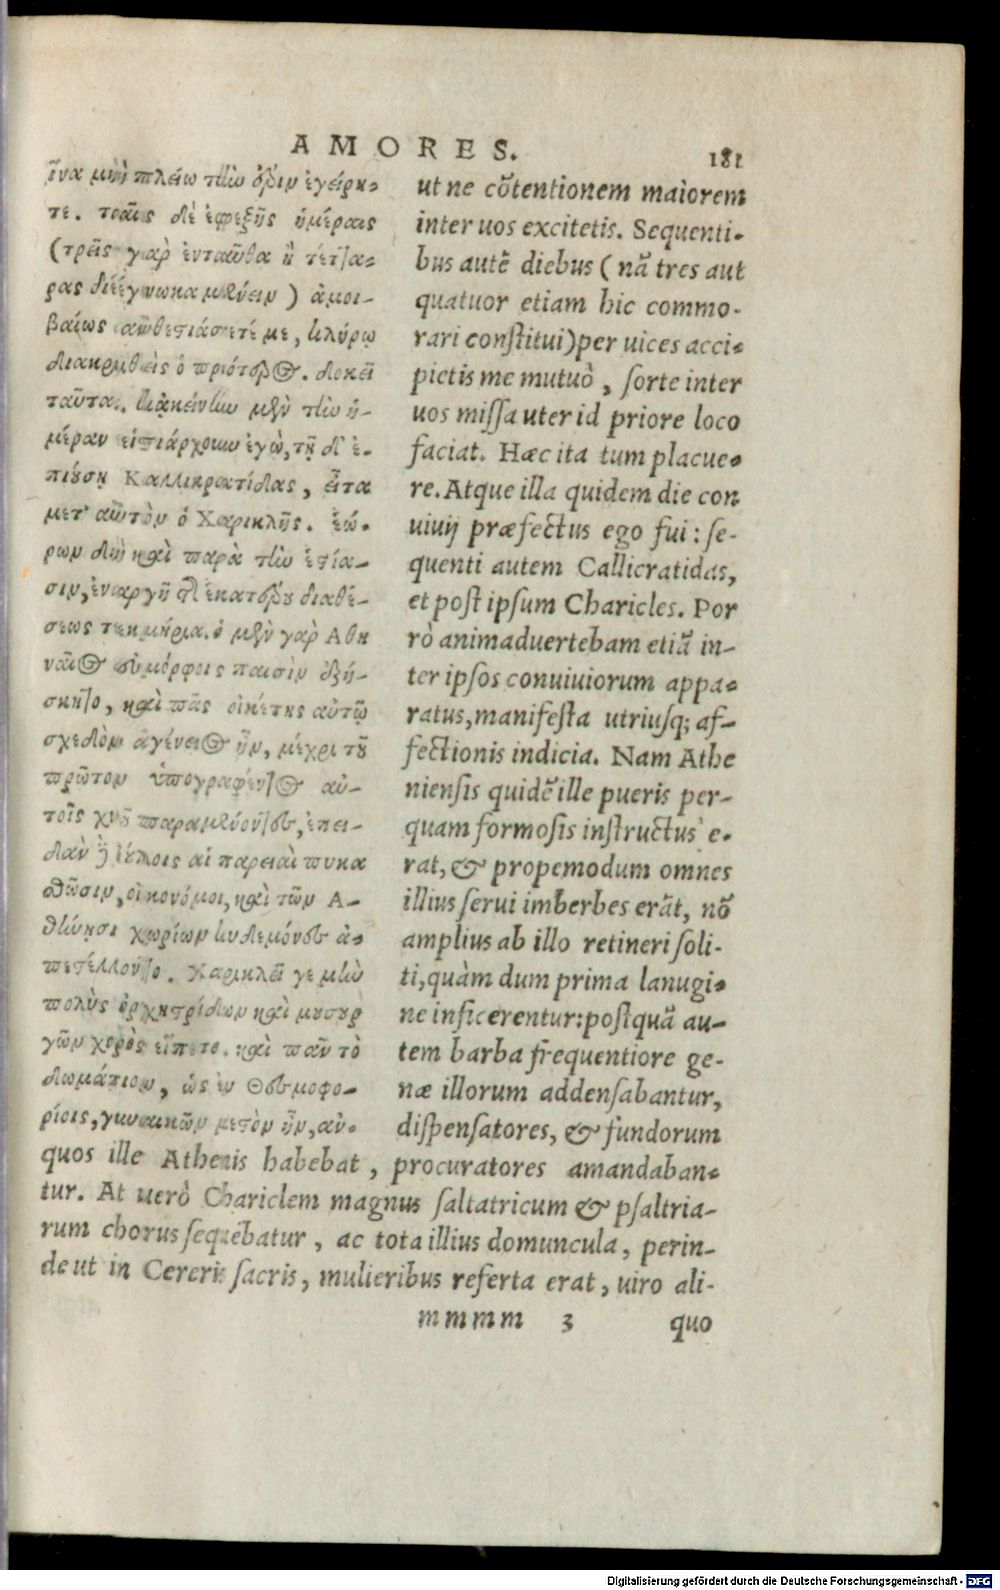 AMORES. 181
ἵνα μὴ πλείω τὴν ἔριν ἐγείρη-
τε. ταῖς δὲ ἐφεξῆς ἡμέραις
(τρεῖς γὰρ ἐνταῦθα ἢ τέτ]α-
ρας διέγνωκα μένειν) ἀμοι-
βαίως ἀνθεστιάσετέ με, κλήρῳ
διακριθεὶς ὁ πρότερος. δοκεῖ
ταῦτα. κἀκείνην μὲν τὴν ἡ-
μέραν εἱστιάρχουν ἐγὼ, τῇ δ' ἐ-
πιούσῃ Καλλικρατίδας, εἶτα
μετ' αὐτὸν ὁ Χαρικλῆς. ἑώ-
ρων δὴ καὶ παρὰ τὴν ἑστία-
σιν, ἐναργῆ τῆς ἑκατέρου διαθέ-
σεως τεκμήρια. ὁ μὲν γὰρ Ἀθη
ναῖος εὐμόρφοις παισὶν ἐξή-
σκη]ο, καὶ πᾶς οἰκέτης αὐτῷ
σχεδὸν ἀγένειος ἦν, μέχρι τοῦ
πρῶτον ὑπογραφέν]ος αὐ-
τοῖς χνοῦ παραμένον]ες, ἐπει-
δὰν δὲ ἰούλοις αἱ παρειαὶ πυκα
σθῶσιν, οἰκονόμοι, καὶ τῶν Ἀ-
θήνησι χωρίων κηδεμόνες ἀ-
πεστέλλον]ο. Χαρικλεῖ γε μὴν
πολὺς ὀρχηστρίδων καὶ μουσουρ
γῶν χορὸς εἵπετο. καὶ πᾶν τὸ
δωμάτιον, ὡς ἐν Θεσμοφο-
ρίοις, γυναικῶν μεστὸν ἦν, ἀν-
ut ne cõtentionem maiorem
inter uos excitetis. Sequenti-
bus autẽ diebus (nã tres aut
quatuor etiam hic commo-
rari constitui) per uices acci-
pietis me mutuò, sorte inter
uos missa uter id priore loco
faciat. Hæc ita tum placue-
re. Atque illa quidem die con
uiuij præfectus ego fui: se-
quenti autem Callicratidas,
et post ipsum Charicles. Por
rò animaduertebam etiã in-
ter ipsos conuiuiorum appa-
ratus, manifesta utriusq; af-
fectionis indicia. Nam Athe
niensis quidẽ ille pueris per-
quam formosis instructus e-
rat, & propemodum omnes
illius serui imberbes erãt, nõ
amplius ab illo retineri soli-
ti, quàm dum prima lanugi-
ne inficerentur: postquã au-
tem barba frequentiore ge-
næ illorum addensabantur,
dispensatores, & fundorum
quos ille Athenis habebat, procuratores amandaban-
tur. At uerò Chariclem magnus saltatricum & psaltria-
rum chorus sequebatur, ac tota illius domuncula, perin-
de ut in Cereris sacris, mulieribus referta erat, uiro ali-
mmmm 3 quo
Digitalisierung gefördert durch die Deutsche Forschungsgemeinschaft - DFG